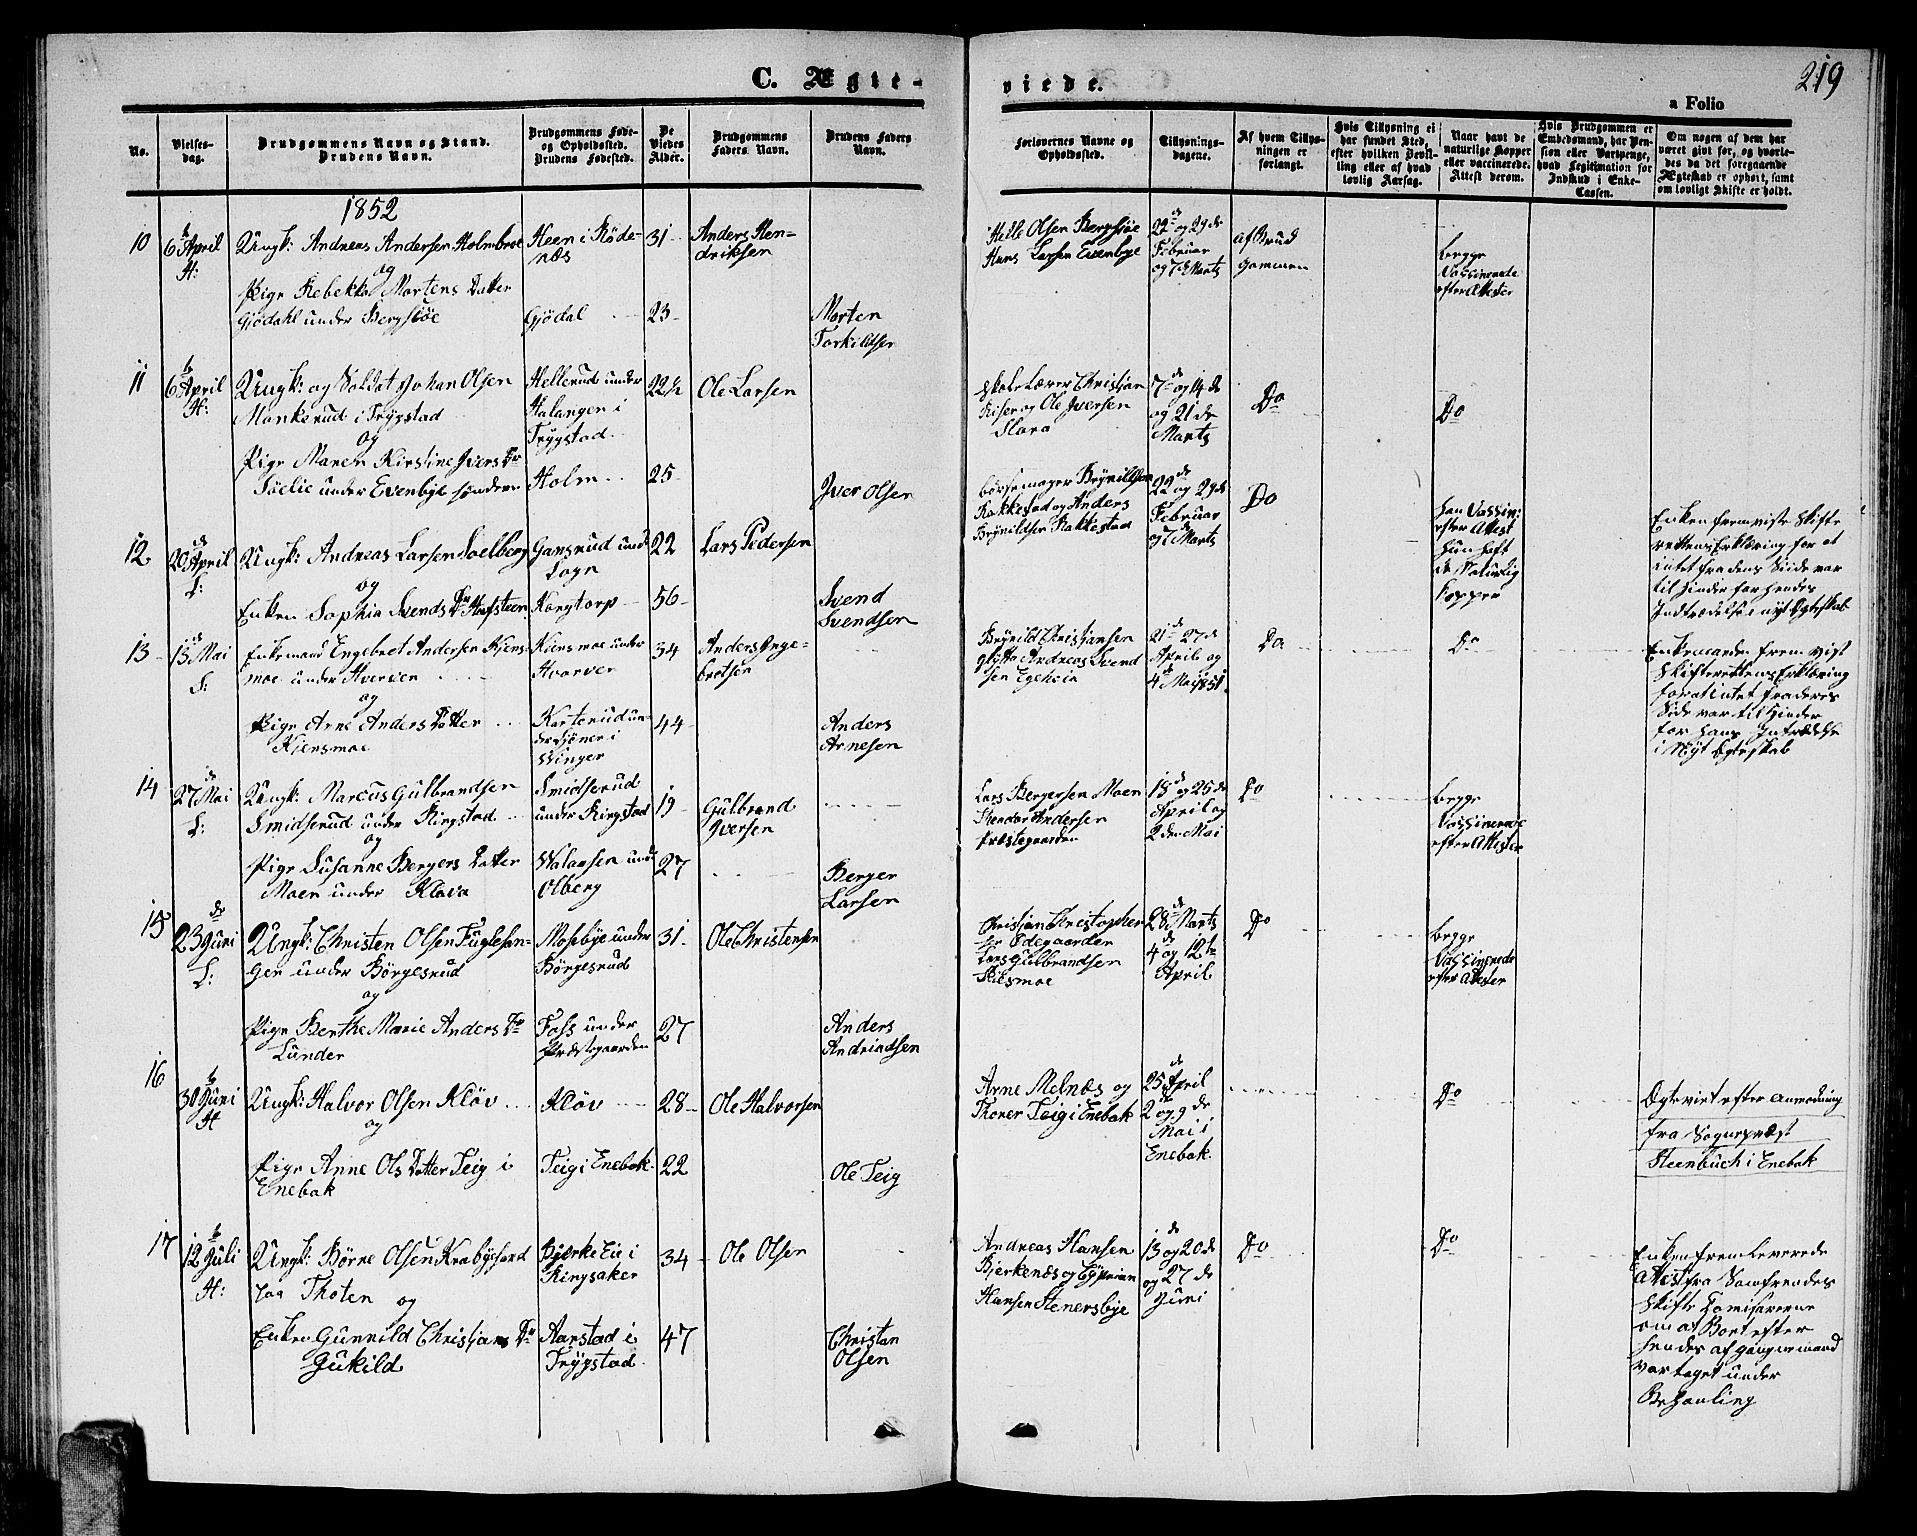 C. Ægte-
viede.
219
a Folio
No.
Vielses-
dag.
Brudgommens Navn og Stand.
Brudens Navn.
Brudgommens Føde-
og Opholdssted.
Brudens Fødested.
De
Viedes
Alder.
Brudgommens
Faders Navn.
Brudens Faders
Navn.
Forlovernes Navne og
Opholdssted.
Tillysnings-
dagene.
Af hvem Tillys-
ningen er
forlangt.
Hvis Tillysning ei
har fundet Sted,
efter hvilken Bevil-
ling eller af hvad
lovlig Aarsag.
Naar havt de
naturlige Kopper
eller vaccinerede.
Attest derom.
Hvis Brudgommen er
Embedsmand, har Pen-
sion eller Vartpenge,
hvad Legitimation for
Indskud i Enke-
Cassen.
Om nogen af dem har
været gift før, og hvorle-
des da det foregaaende
Ægteskab er ophørt, samt
om lovligt Skifte er holdt.
1852
10
6 April
H:
Ungk: Andreas Andersen Holmbroe
og
Pige Rebekka Mortens Datter
Gjödahl under Bergsiöe
Heen i Röde-
næs
Gjödal
31
23
Anders Hen-
driksen
Morten
Torkildsen
Helle Olsen Bergsjöe
Hans Larsen Evenbye
22 og 29 de
Februar
og 7 de Marts
af Brud
gommen
begge
Vassinerede
efter Attester
11
6 April
H:
Ungk: og Soldat Johan Olsen
Mankerud i Trygstad
og
Pige Maren Kirstine Ivers Dr
Söelie under Evenbye söndern
Hellerud under
Halangen i
Trygstad
Holm
22½
25
Ole Larsen
Iver Olsen
Skolelærer Christjan
Riser og Ole Iversen
Slora
7 og 14 de
og 21 de
Marts
Do
Do
12
20 April
L:
Ungk: Andreas Larsen Soelberg
og
Enken Sophia Svends Dr Hafsteen
Gansrud und
Logn
Korgtorp
22
56
Lars Pedersen
Svend
Svendsen
Börsemager Brynildsen
Rakkestad og Anders
Brynildsen Rakkestad
22 og 29 de
Februar
og 7 Marts
Do
han Vassin:
efter Attest
hun haft
de Naturlig
Kopper
Enken fremviste Skifte
rettens Erklæring for at
intet fra dens Side var
til Hinder for hendes
Indtrædelse i nyt Egteskab
13
15 Mai
L:
Enkemand Engebret Andersen Kjens-
moe under Hverven
og
Pige Arne Anders Datter
Kjensmoe
Kiensmoe under
Hvarver
Karterud un-
der Sjöner i
Winger
34
44
Anders Inge-
bretsen
Anders
Arnesen
Brynild Christjansen
Glytta Andreas Svend
sen Egeheia
21 27 de
April og
4 Mai 1851
Do
Do
Enkemanden frem vist
Skifterettens Erklæring
for at intet fra deres
Side var til Hinder
for hans Intrædelse
i Nyt Egteskab
14
27 Mai
L:
Ungk: Marcus Gulbrandsen
Smidserud under Ringstad
og
Pige Susanne Bergers Datter
Moen under Klava
Smidserud
under Ringstad
Walaasen und
Olberg
19
27
Gulbrand
Iversen
Berger
Larsen
Lars Bergersen Moen
Stendor Andersen
Præstegaarden
18 og 25 de
April og
2 den Mai
Do
begge
Vassinerede
efter Attester
15
23 Juni
L:
Ungk: Christen Olsen Fuglesan-
gen under Börgesrud
og
Pige Berthe Marie Anders Dr
Lunder
Mosebye under
Börgesrud
Foss under
Præstegaarden
31
27
Ole Christensen
Anders
Andriadsen
Christjan Christopher
sen Ödegaarden
Lars Gulbrandsen
Riesmoe
28 Marts
4 og 12te
April
Do
begge
Vassinerede
efter Attester
16
30 Juni
H
Ungk: Halvor Olsen Klöv
og
Pige Anne Ols Datter Teig i
Enebak
Klöv
Teig i Enebak
28
22
Ole Halvorsen
Ole Teig
Arne Melnæs og
Thoner Teig i Enebak
25 April
2 og 9 de
Mai i
Enebak
Do
Egteviet efter Anmodning
fra Sognepræst
Steenbuch i Enebak
17
12 Juli
H:
Ungk: Börne Olsen Krabysand
paa Thoten
og
Enken Gunnild Christjans Dr
Gukild
Bjerke Eie i
Ringsaker
Aarstad i
Trygstad
34
47
Ole Olsen
Christan
Olsen
Andreas Hansen
Bjerkenæs og Cyprian
Hansen Stenersbye
13 og 20 de
og 27 de
Juni
Do
Do
Enken fremleverede
Attest fra Samfrendes
Skifte Comisærerne
om at Boet efter
hendes afgangne mand
var taget under
Behandling